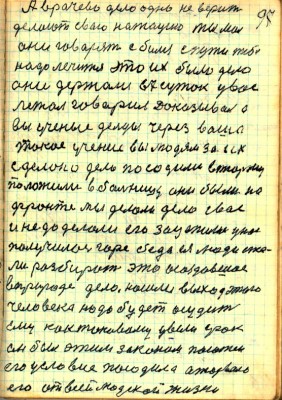 95
А врачево дело одно не верит
делают сваю
они говарят с били с пути тебе
надо лечится это их было дело
они держали суток у вас
летал говарил доказывал а
вы ученые деды через ваша
такое учение вы людям за их
сделоно дело посодили в тюрму
положили в болницу они были на
фронте мы делали дела свае
и недоделали его зацепили у нас
получилася горе беда и люди ста-
ли разбират это создавшее
в природе дело, нашли выход этого
человека надо будет осудит
ему как таковому ввели срок
он был этим законам положен
его условие погодила аторвало
его от всей людской жизни